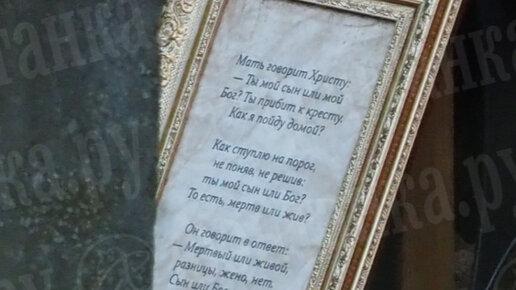 Мать говорит Христу:
— Ты мой сын или мой
Бог? Ты прибит к кресту.
Как я пойду домой?
Как ступлю на порог,
не поняв, не решив:
ты мой сын или Бог?
То есть, мертв или жив?
Он говорит в ответ:
— Мертвый или живой,
разницы, жено, нет.
Сын или